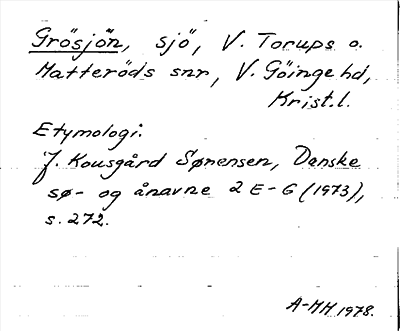 Grösjön, sjö, V. Torups o.
Matteröds snr, V. Göinge hd,
Krist.l.
Etymologi:
J. Kousgård Sørensen, Danske
sø- og ånavne 2 E-G (1973),
s. 272.
A-MH 1978.